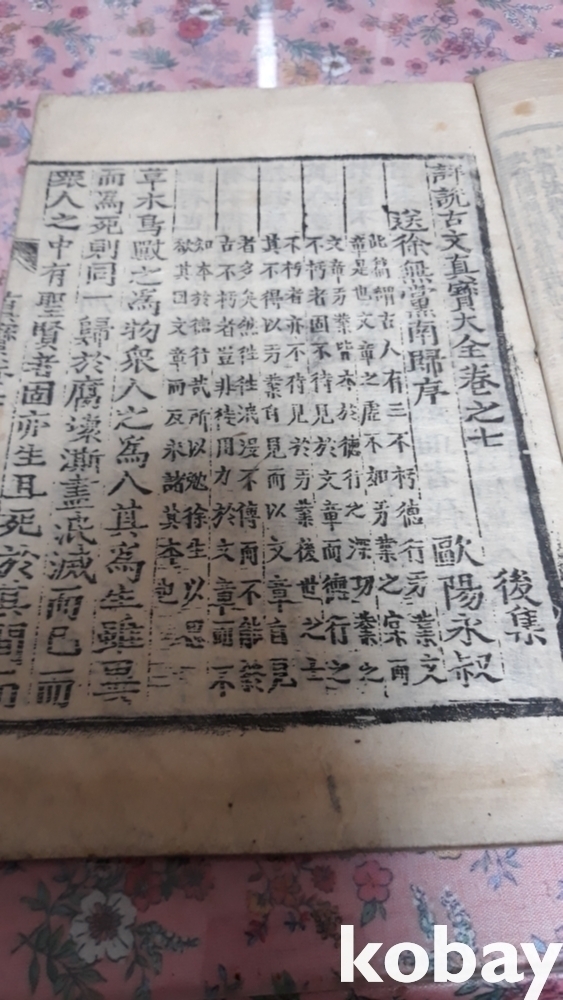 詳說古文眞寶大全卷之七 後集
送徐無黨南歸序 歐陽永叔
此篇謂古人有三不朽德行功業文
章是也文章之虛不如功業之實而
文章功業皆本於德行之深功業之
不朽者固不待見於文章而德行之
不朽者亦不待見於功業後世之士
其不得以功業自見而以文章自見
者多矣然往往泯漫不傳而不能
古不朽者豈非徒用力於文章而不
知本於德行哉所以勉徐生以思
欲其因文章而反求諸其本也
草木鳥獸之為物衆人之為人其為生雖異
而為死則同一歸於腐壞澌盡泯滅而已而
衆人之中有聖賢者固亦生且死於其間而
kobay